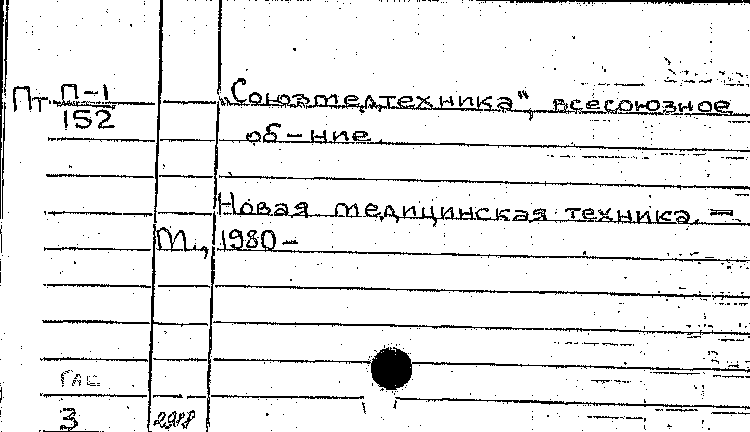 Пт П-1
152
„Союзмедтехника", всесоюзное
об-ние.
Новая медицинская техника. —
М., 1980-
ГАС
3 2988